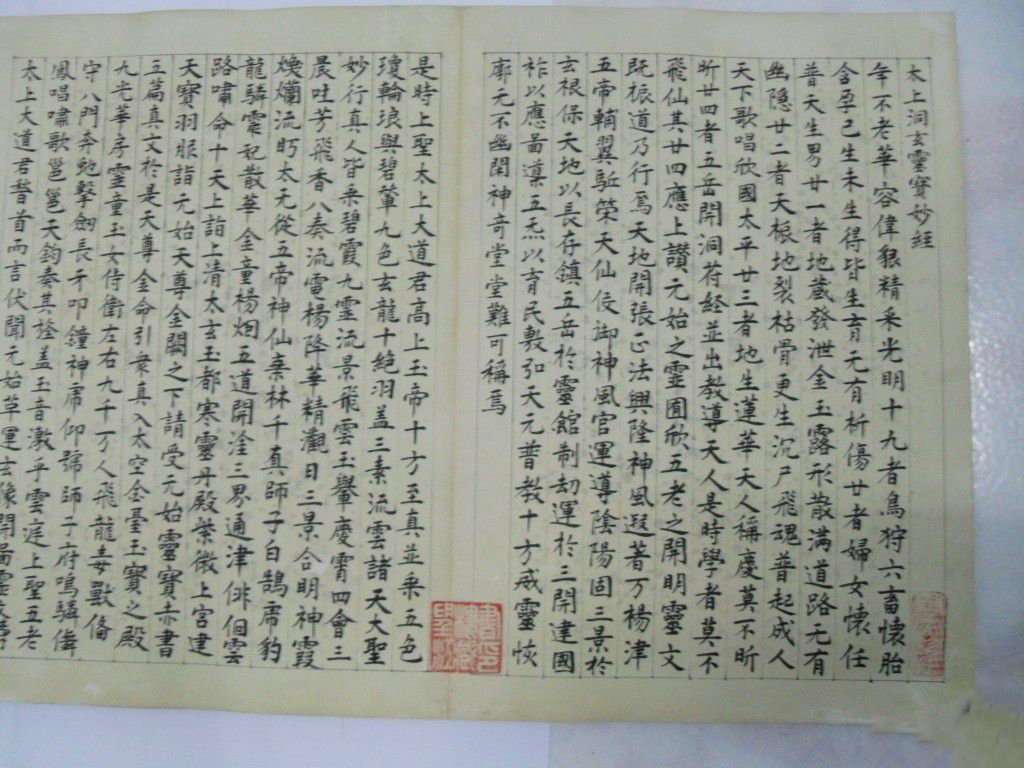 太上洞玄靈寶妙經
年不老華容偉貌精采光明十九者鳥狩六畜懷胎
含孕已生未生得皆生育无有析傷廿者婦女懷任
普天生男廿一者地藏發泄金玉露形散滿道路无有
幽隱廿二者天根地裂枯骨更生沉尸飛魂普起成人
天下歌唱欣國太平廿三者地生蓮華天人稱慶莫不昕
昕廿四者五岳開洞苻經並出教導天人是時學者莫不
飛仙其廿四應上讚元始之靈圃欣五老之開明靈文
既振道乃行焉天地開張正法興隆神風遐著万楊津
五帝輔翼駈榮天仙伇御神風官運導陰陽固三景於
玄根保天地以長存鎮五岳於靈館制劫運於三開建國
祚以應啚導五炁以育民敷弘天元普教十方咸靈恢
廓无不幽開神奇堂堂難可稱焉
是時上聖太上大道君高上玉帝十方至真並乘五色
瓊輪琅輿碧輦九色玄龍十絕羽盖三素流雲諸天大聖
妙行真人皆乘碧霞九靈流景飛雲玉轝慶霄四會三
晨吐芳飛香八奏流雪楊降華精灌日三景合明神霞
煥爛流眄太无從五帝神仙乘林千真師子白鵠席豹
龍驎靈妃散華金童楊烟五道開塗三界通津徘徊雲
路嘯命十天上詣上清太玄玉都寒靈丹殿紫微上宮建
天寶羽服詣元始天尊金闕之下請受元始靈寶赤書
五篇真文於是天尊金命引衆真入太空金臺玉寶之殿
九光華房靈童玉女侍衛左右九千万人飛龍毒獸俻
守八門奔虵擊劒長千叩鐘神席仰號師子府鳴驎儛
鳳唱嘯歌邕邕天鈞奏其旍盖玉音激乎雲庭上聖五老
太上大道君稽首而言伏聞元始草運玄像開啚靈文